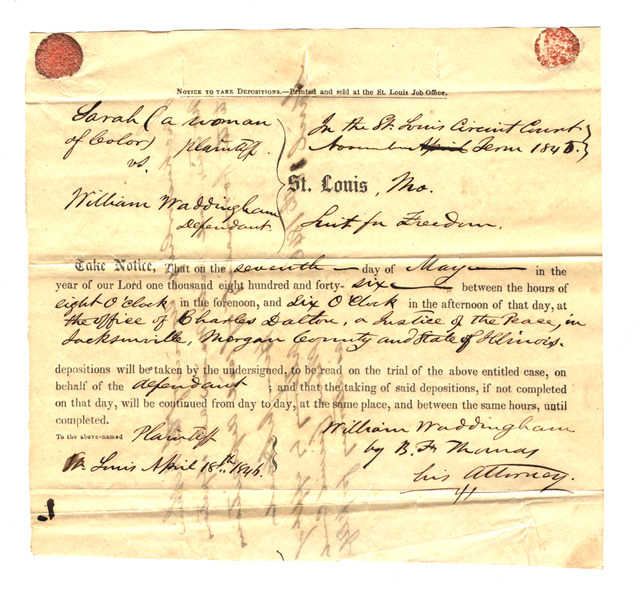 NOTICE TO TAKE DEPOSITIONS.—Printed and sold at the St. Louis Job Office.
Sarah (a woman
of Color) Plaintiff
vs.
William Waddingham
Defendant
In the St. Louis Circuit Court
November April Term 1845.
St. Louis, Mo.
Suit for Freedom.
Take Notice, That on the seventh day of May in the
year of our Lord one thousand eight hundred and forty-six between the hours of
eight O'clock in the forenoon, and six O'Clock in the afternoon of that day, at
the office of Charles Dalton, a Justice of the Peace, in
Jacksonville, Morgan County and State of Illinois.
depositions will be taken by the undersigned, to be read on the trial of the above entitled case, on
behalf of the defendant ; and that the taking of said depositions, if not completed
on that day, will be continued from day to day, at the same place, and between the same hours, until
completed.
To the above-named Plaintiff
St. Louis April 18th 1846.
William Waddingham
by B. F. Thomas
his Attorney.